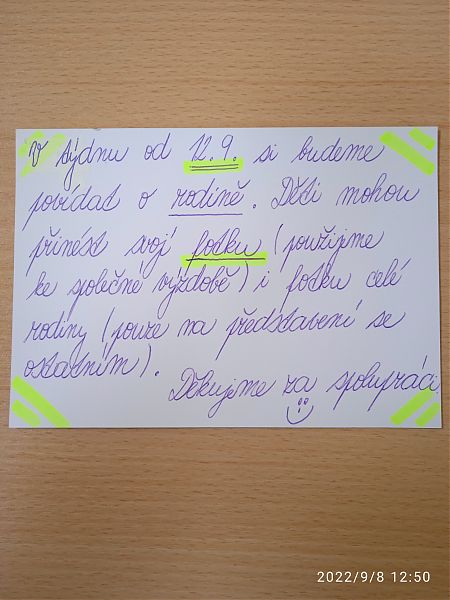 V týdnu od 12.9. si budeme
povídat o rodině. Děti mohou
přinést svojí fotku (použijeme
ke společné výzdobě) i fotku celé
rodiny (pouze na představení se
ostatním).
Děkujeme za spolupráci
2022/9/8 12:50